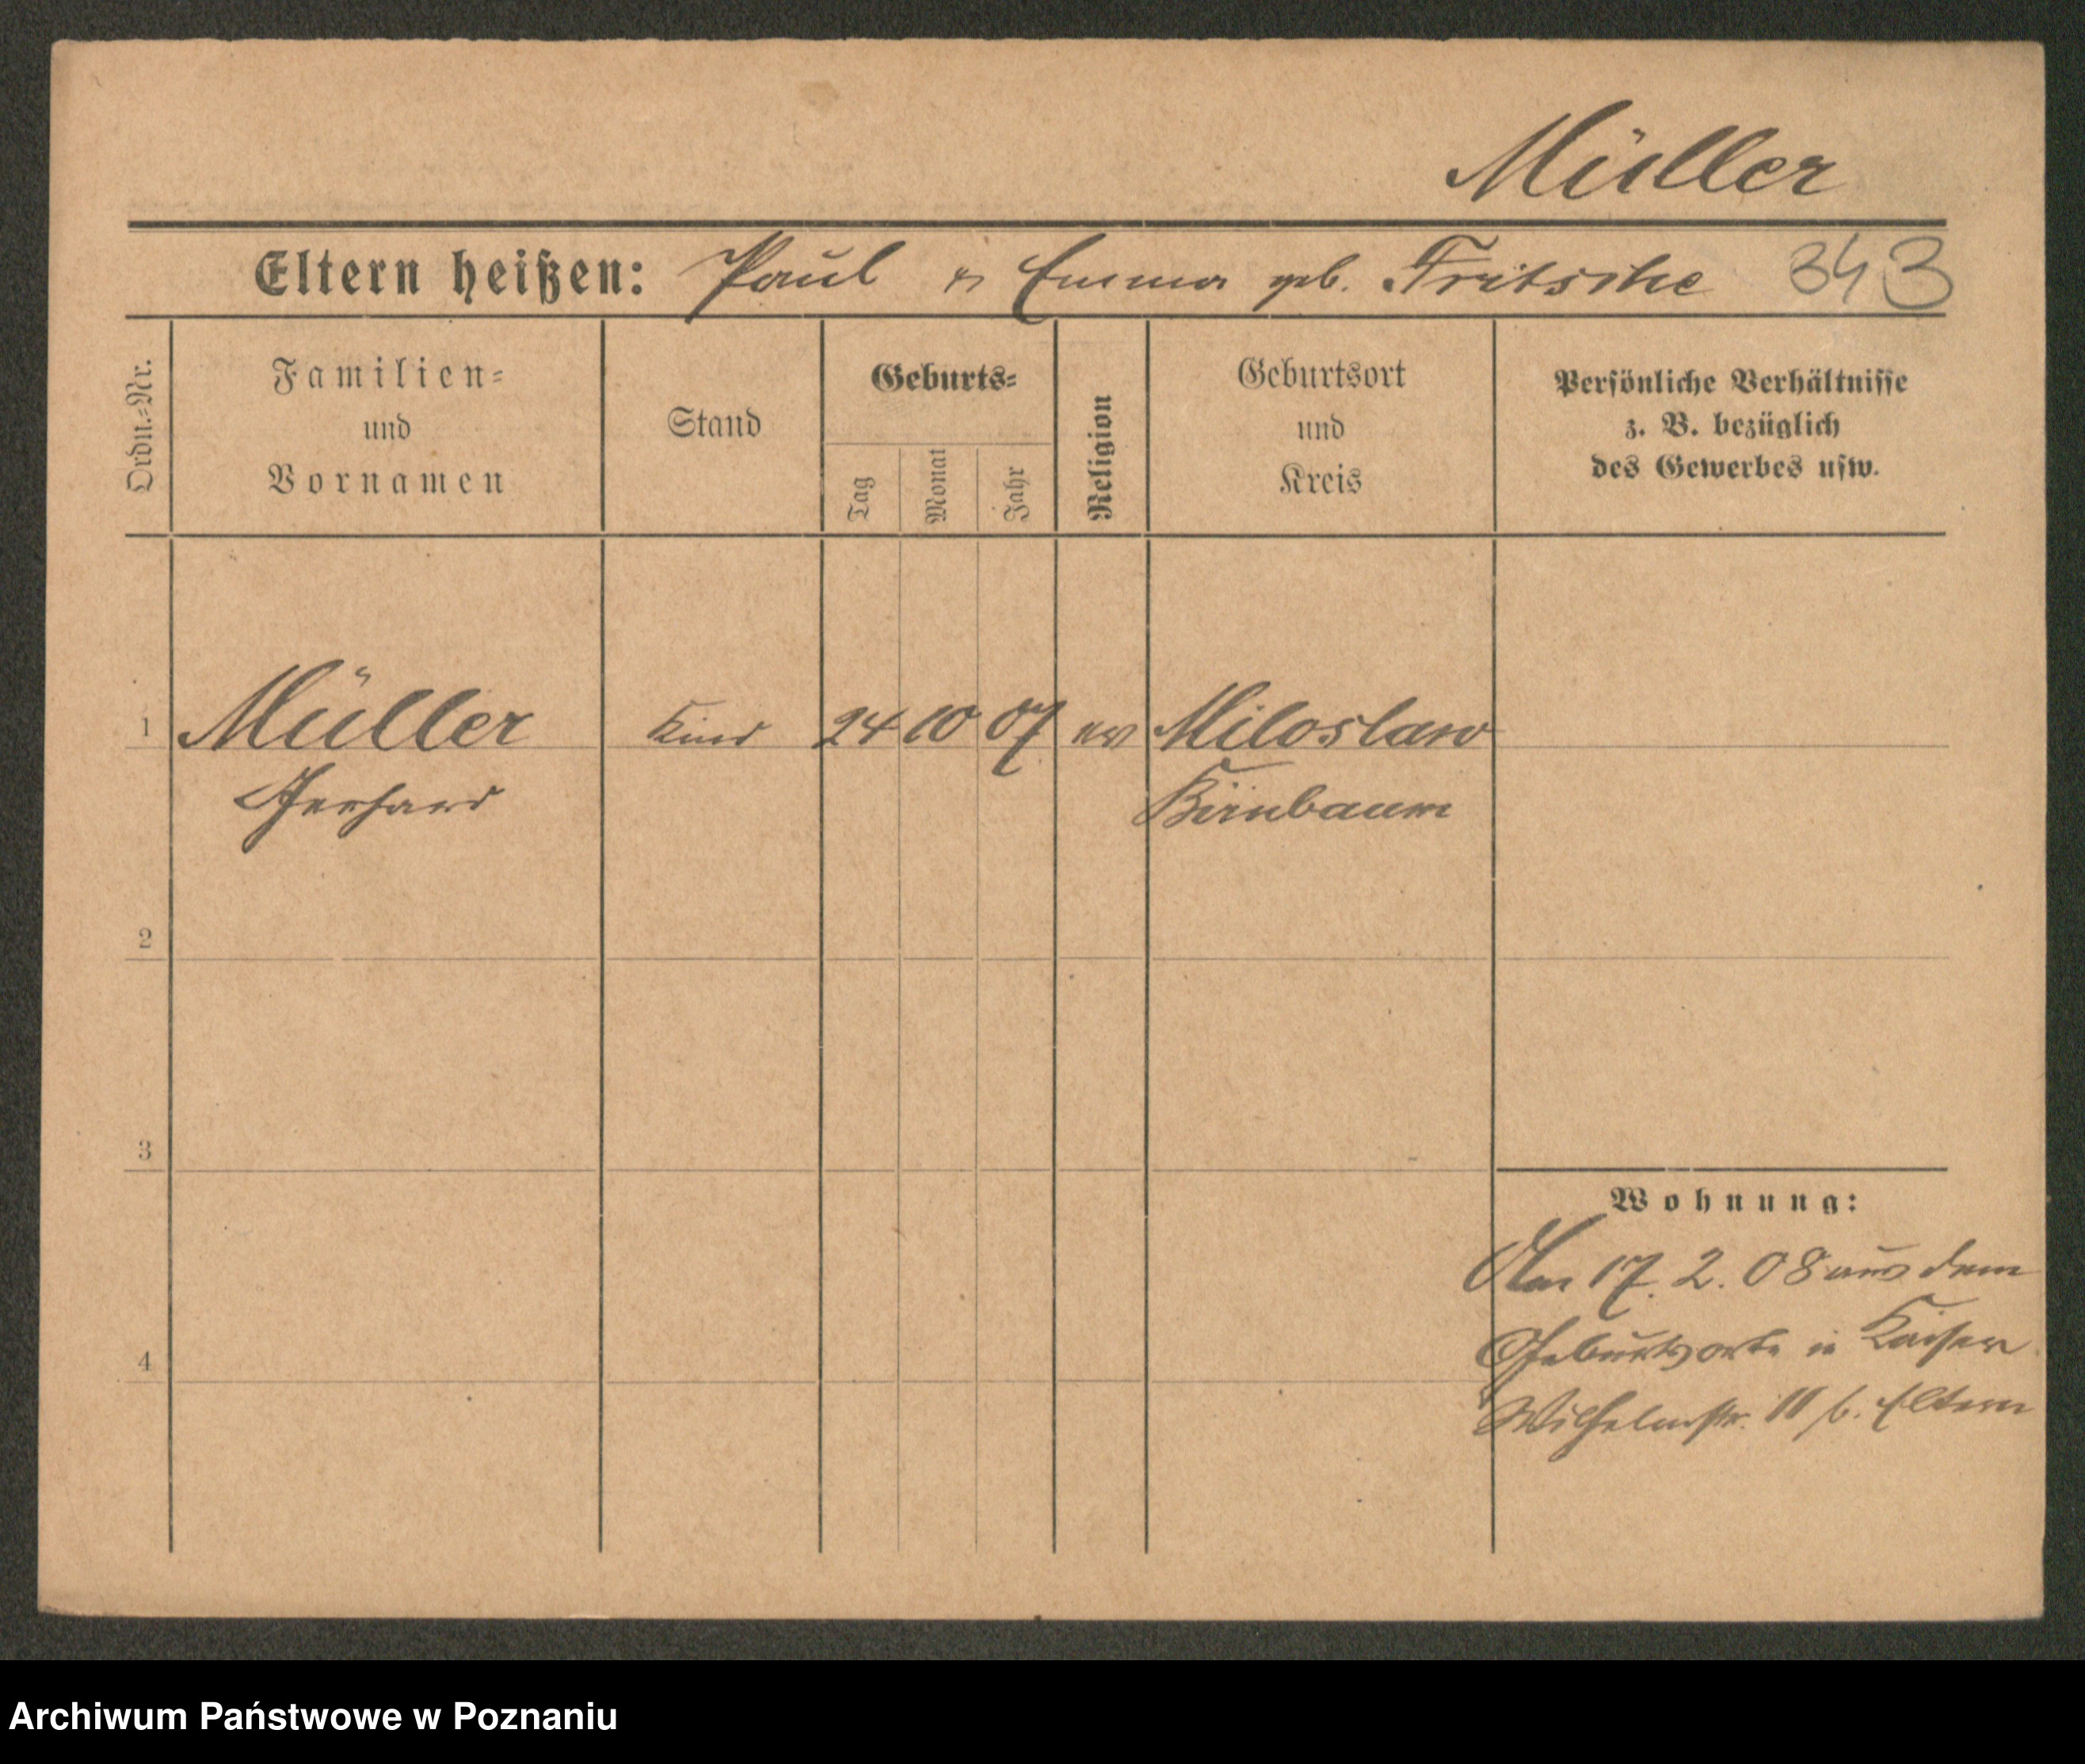 Müller
Eltern heißen: Paul u Emma geb. Fritsche 343
Ordn.-Nr. Familien- und Vornamen Stand Geburts- Tag Monat Jahr Religion Geburtsort und Kreis Persönliche Verhältnisse z. B. bezüglich des Gewerbes usw.
1 Müller Kind 24 10 07 ev Miloslaw
Gerhard Birnbaum
2
3
Wohnung:
Am 17. 2. 08 aus dem
Geburtsorte in Kaiser
4
Wilhelmstr. 11 b. Eltern
Archiwum Państwowe w Poznaniu